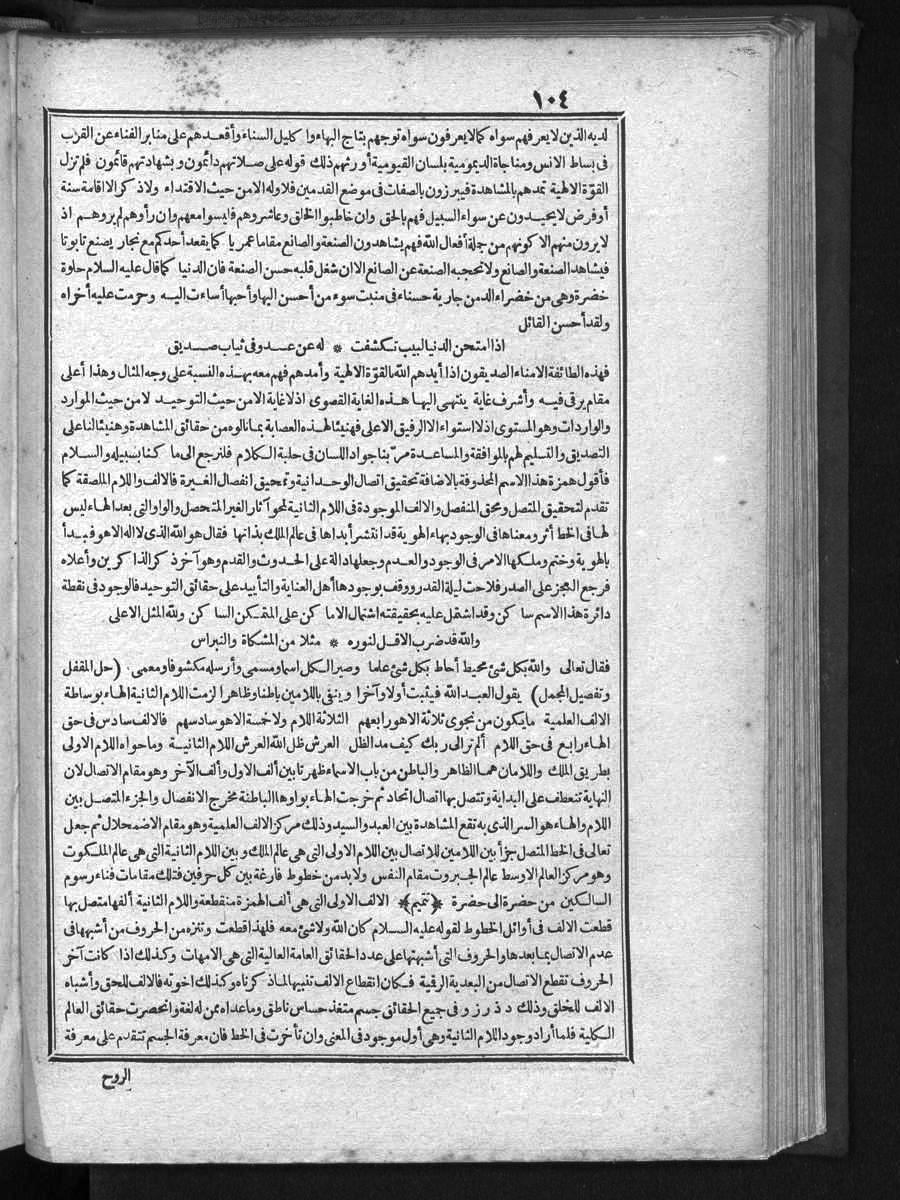 ١٠٤
لديه الذين لا يعرفهم سواه كما لا يعرفون سواه توجهم بتاج البهاء واكليل السناء وأقعدهم على منابر الفناء عن القرب
فى بساط الانس ومناجاة الديمومية بلسان القيومية أورثهم ذلك قوله على صلاتهم دائمون وبشهادتهم قائمون فلم تزل
القوّة الالهية تمدهم بالمشاهدة فيبرزون بالصفات فى موضع القدمين فلا وله الا من حيث الاقتداء ولا ذكر الا اقامة سنة
أو فرض لا يحيدون عن سواء السبيل فهم بالحق وان خاطبوا الخلق وعاشروهم فليسوا معهم وان رأوهم لم يروهم اذ
لا يرون منهم الا كونهم من جملة أفعال الله فهم يشاهدون الصنعة والصانع مقاما عمريا كما يقعد أحدكم مع نجار يصنع تابوتا
فيشاهد الصنعة والصانع ولا تحجبه الصنعة عن الصانع الا ان شغل قلبه حسن الصنعة فان الدنيا كما قال عليه السلام حلوة
خضرة وهى من خضراء الدمن جارية حسناء فى منبت سوء من أحسن اليها وأحبها أساءت اليه وحرمت عليه أخراه
ولقد أحسن القائل
اذا امتحن الدنيا لبيب تكشفت * له عن عدو فى ثياب صديق
فهذه الطائفة الامناء الصديقون اذا أيدهم الله بالقوّة الالهية وأمدهم فهم معه بهذه النسبة على وجه المثال وهذا أعلى
مقام يرقى فيه وأشرف غاية ينتهى اليها هذه الغاية القصوى اذ لا غاية الا من حيث التوحيد لا من حيث الموارد
والواردات وهو المستوى اذ لا استواء الا الرفيق الاعلى فهنيئا لهذه العصابة بما نالوه من حقائق المشاهدة وهنيئا لنا على
التصديق والتسليم لهم بالموافقة والمساعدة مرّ بنا جواد اللسان فى حلبة الكلام فلنرجع الى ما كنا بسبيله والسلام
فأقول همزة هذا الاسم المحذوفة بالاضافة تحقيق اتصال الوحدانية وتمحيق انفصال الغيرة فالالف واللام الملصقة كما
تقدم لتحقيق المتصل ومحق المنفصل والالف الموجودة فى اللام الثانية لمحو آثار الغير المتحصل والواو التى بعد الهاء ليس
لها فى الخط أثر ومعناها فى الوجود بهاء الهوية قد انتشر أبداها فى عالم الملك بذاتها فقال هو الله الذى لا اله الا هو فبدأ
بالهوية وختم وملكها الامر فى الوجود والعدم وجعلها دالة على الحدوث والقدم وهو آخر ذكر الذاكرين وأعلاه
فرجع العجز على الصدر فلاحت ليلة القدر ووقف بوجودها أهل العناية والتأييد على حقائق التوحيد فالوجود فى نقطة
دائرة هذا الاسم ساكن وقد اشتمل عليه بحقيقته اشتمال الاماكن على المتمكن الساكن ولله المثل الاعلى
والله قد ضرب الاقل لنوره * مثلا من المشكاة والنبراس
فقال تعالى والله بكل شئ محيط أحاط بكل شئ علما وصير الكل اسما ومسمى وأرسله مكشوفا ومعمى. (حل المقفل
وتفصيل المجمل) يقول العبد الله فيثبت أولا وآخرا وينفى باللامين باطنا وظاهرا لزمت اللام الثانية الهاء بوساطة
الالف العلمية ما يكون من نجوى ثلاثة الا هو رابعهم الثلاثة اللام ولا خمسة الا هو سادسهم فالالف سادس فى حق
الهاء رابع فى حق اللام ألم تر الى ربك كيف مد الظل العرش ظل الله العرش اللام الثانية وما حواه اللام الاولى
بطريق الملك واللامان هما الظاهر والباطن من باب الاسماء ظهرتا بين ألف الاول وألف الآخر وهو مقام الاتصال لان
النهاية تنعطف على البداية وتتصل بها اتصال اتحاد ثم خرجت الهاء بواوها الباطنة مخرج الانفصال والجزء المتصل بين
اللام والهاء هو السر الذى به تقع المشاهدة بين العبد والسيد وذلك مركز الالف العلمية وهو مقام الاضمحلال ثم جعل
تعالى فى الخط المتصل جزأ بين اللامين للاتصال بين اللام الاولى التى هى عالم الملك وبين اللام الثانية التى هى عالم الملكوت
وهو مركز العالم الاوسط عالم الجبروت مقام النفس ولا بد من خطوط فارغة بين كل حرفين فتلك مقامات فناء رسوم
السالكين من حضرة الى حضرة ﴿تتميم﴾ الالف الاولى التى هى ألف الهمزة منقطعة واللام الثانية ألفها متصل بها
قطعت الالف فى أوائل الخطوط لقوله عليه السلام كان الله ولا شئ معه فلهذا قطعت وتنزه من الحروف من أشبهها فى
عدم الاتصال بما بعدها والحروف التى أشبهتها على عدد الحقائق العامة العالية التى هى الامهات وكذلك اذا كانت آخر
الحروف تقطع الاتصال من البعدية الرقية فكان انقطاع الالف تنبيها لما ذكرناه وكذلك اخوته فالالف للحق وأشباه
الالف للخلق وذلك د ذ ر ز و فى جميع الحقائق جسم متغذ حساس ناطق وما عداه ممن له لغة وانحصرت حقائق العالم
الكلية فلما أراد وجود اللام الثانية وهى أول موجود فى المعنى وان تأخرت فى الخط فان معرفة الجسم تتقدم على معرفة
الروح